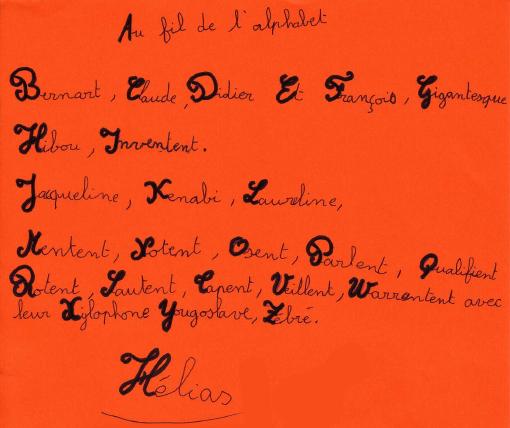 Au fil de l'alphabet
Bernart, Claude, Didier Et François, Gigantesque
Hibou, Inventent.
Jacqueline, Kenabi, Laureline,
Mentent, Notent, Osent, Parlent, Qualifient
Rotent, Sautent, Tapent, Veillent, Warrentent avec
leur Xylophone Yougoslave, Zébré.
Hélias